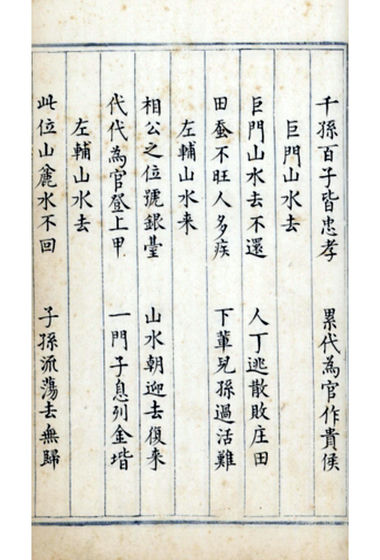 千孫百子皆忠孝　累代為官作貴侯
巨門山水去
巨門山水去不還　人丁逃散敗庄田
田蚕不旺人多疾　下輩兒孫過活難
左輔山水来
相公之位號銀臺　山水朝迎去復来
代代為官登上甲　一門子息列金堦
左輔山水去
此位山麄水不回　子孫流蕩去無歸